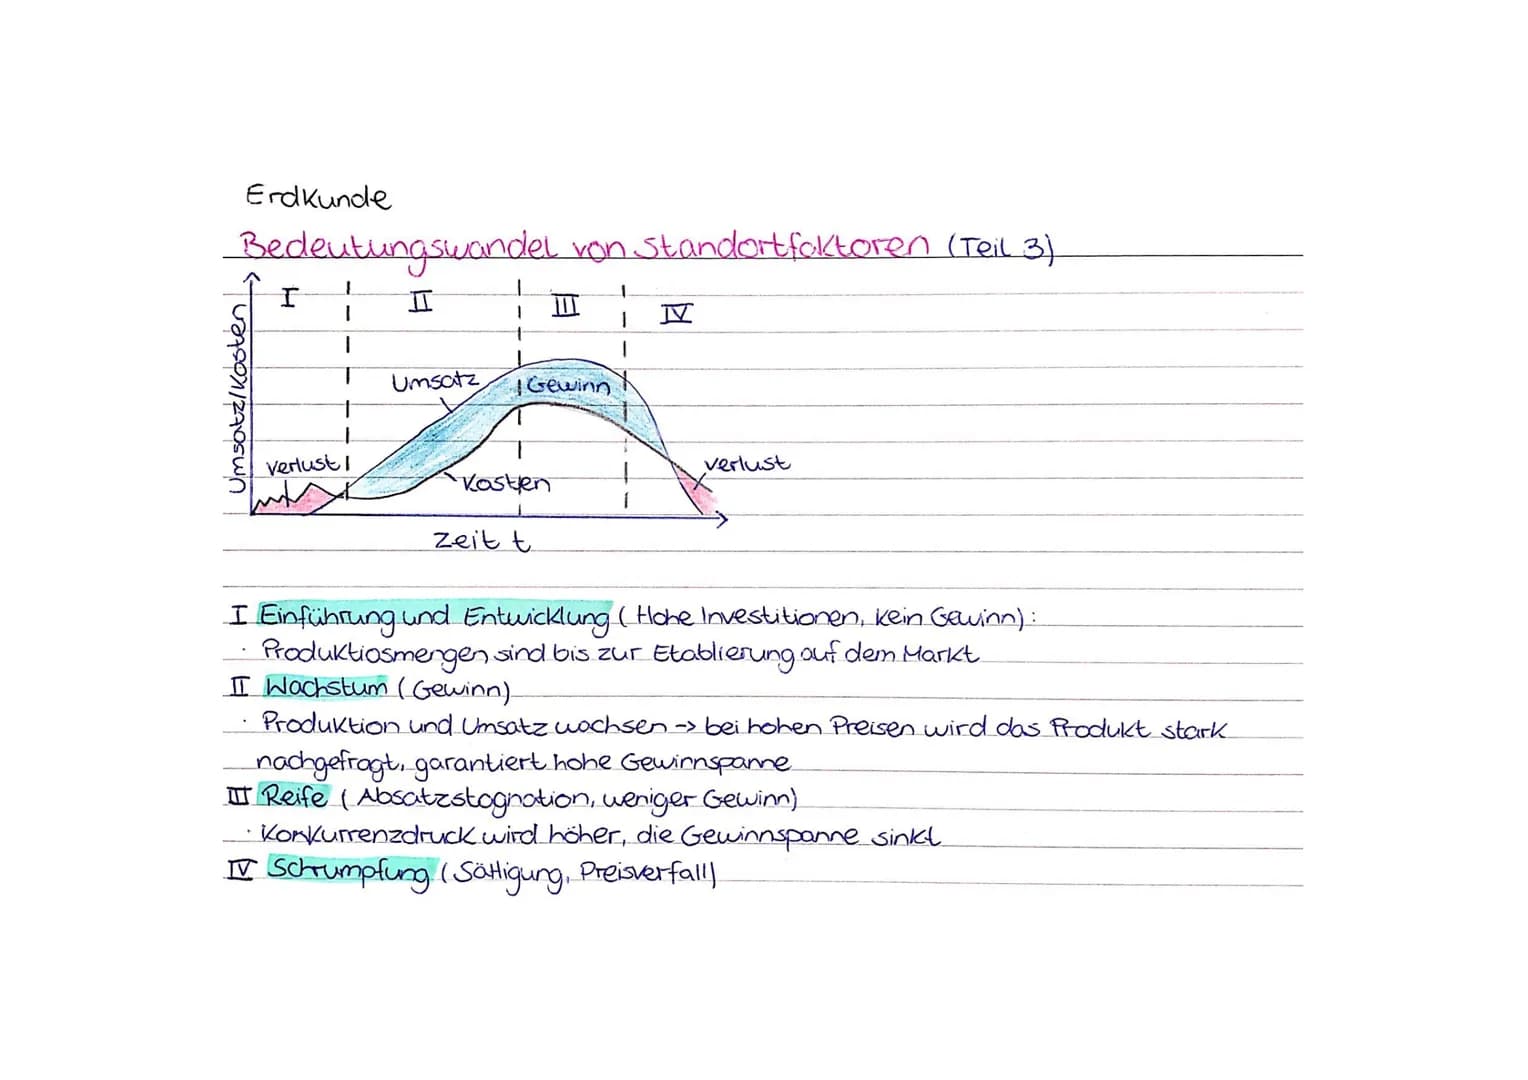 Erdkunde
Bedeutungswandel von Standortfaktoren (Teil 3)
I II III IV
Umsatz/Kosten
Umsatz
Gewinn
Verlust
Verlust
Kosten
Zeit t
I Einführung und Entwicklung (Hohe Investitionen, kein Gewinn):
· Produktiosmengen sind bis zur Etablierung auf dem Markt
II Wachstum (Gewinn)
· Produktion und Umsatz wachsen -> bei hohen Preisen wird das Produkt stark
nachgefragt, garantiert hohe Gewinnspanne
III Reife (Absatzstagnation, weniger Gewinn)
· Konkurrenzdruck wird höher, die Gewinnspanne sinkt
IV Schrumpfung (Sättigung, Preisverfall)